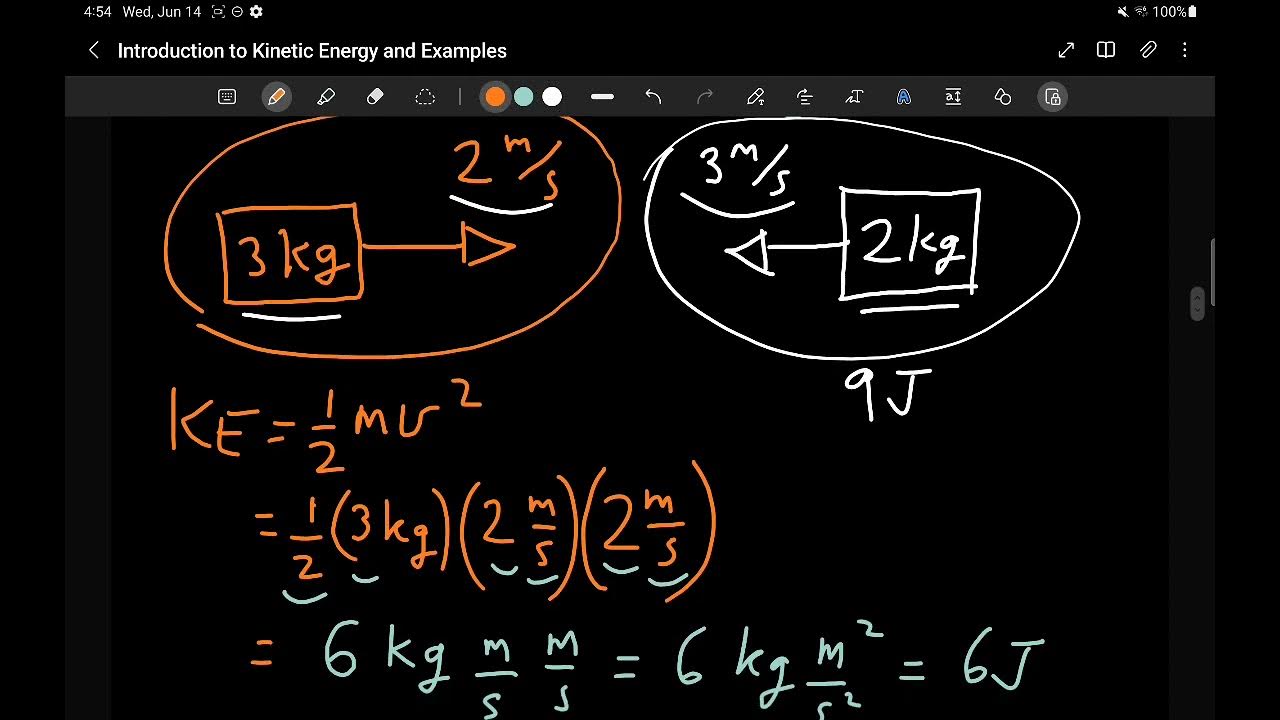 4:54 Wed, Jun 14 100%
Introduction to Kinetic Energy and Examples
2 m/s 3 m/s
3 kg 2 kg
9 J
KE = 1/2 mv²
= 1/2 (3 kg) (2 m/s) (2 m/s)
= 6 kg m/s m/s = 6 kg m²/s² = 6 J